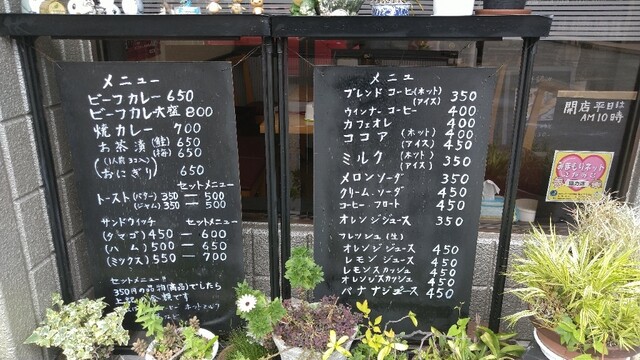 メニュー
ビーフカレー 650
ビーフカレー大盛 800
焼カレー 700
お茶漬 (鮭) 650
(梅) 650
(1人前 3コ入)
おにぎり 650
セットメニュー
トースト (バター) 350 ー 500
(ジャム) 350 ー 500
サンドウィッチ セットメニュー
(タマゴ) 450 ー 600
(ハム) 500 ー 650
(ミックス) 550 ー 700
セットメニュー
350円の品物(商品)でしたら
メニュ
ブレンドコーヒ (ホット) 350
(アイス)
ウィンナーコーヒー 400
カフェオレ 400
ココア (ホット) 400
(アイス) 450
ミルク (ホット) 350
(アイス)
メロンソーダ 350
クリームソーダ 450
コーヒーフロート 450
オレンジジュース 350
フレッシュ (生)
オレンジジュース 450
レモンジュース 450
レモンスカッシュ 450
オレンジスカッシュ 450
バナナジュース 450
開店 平日は
AM10時